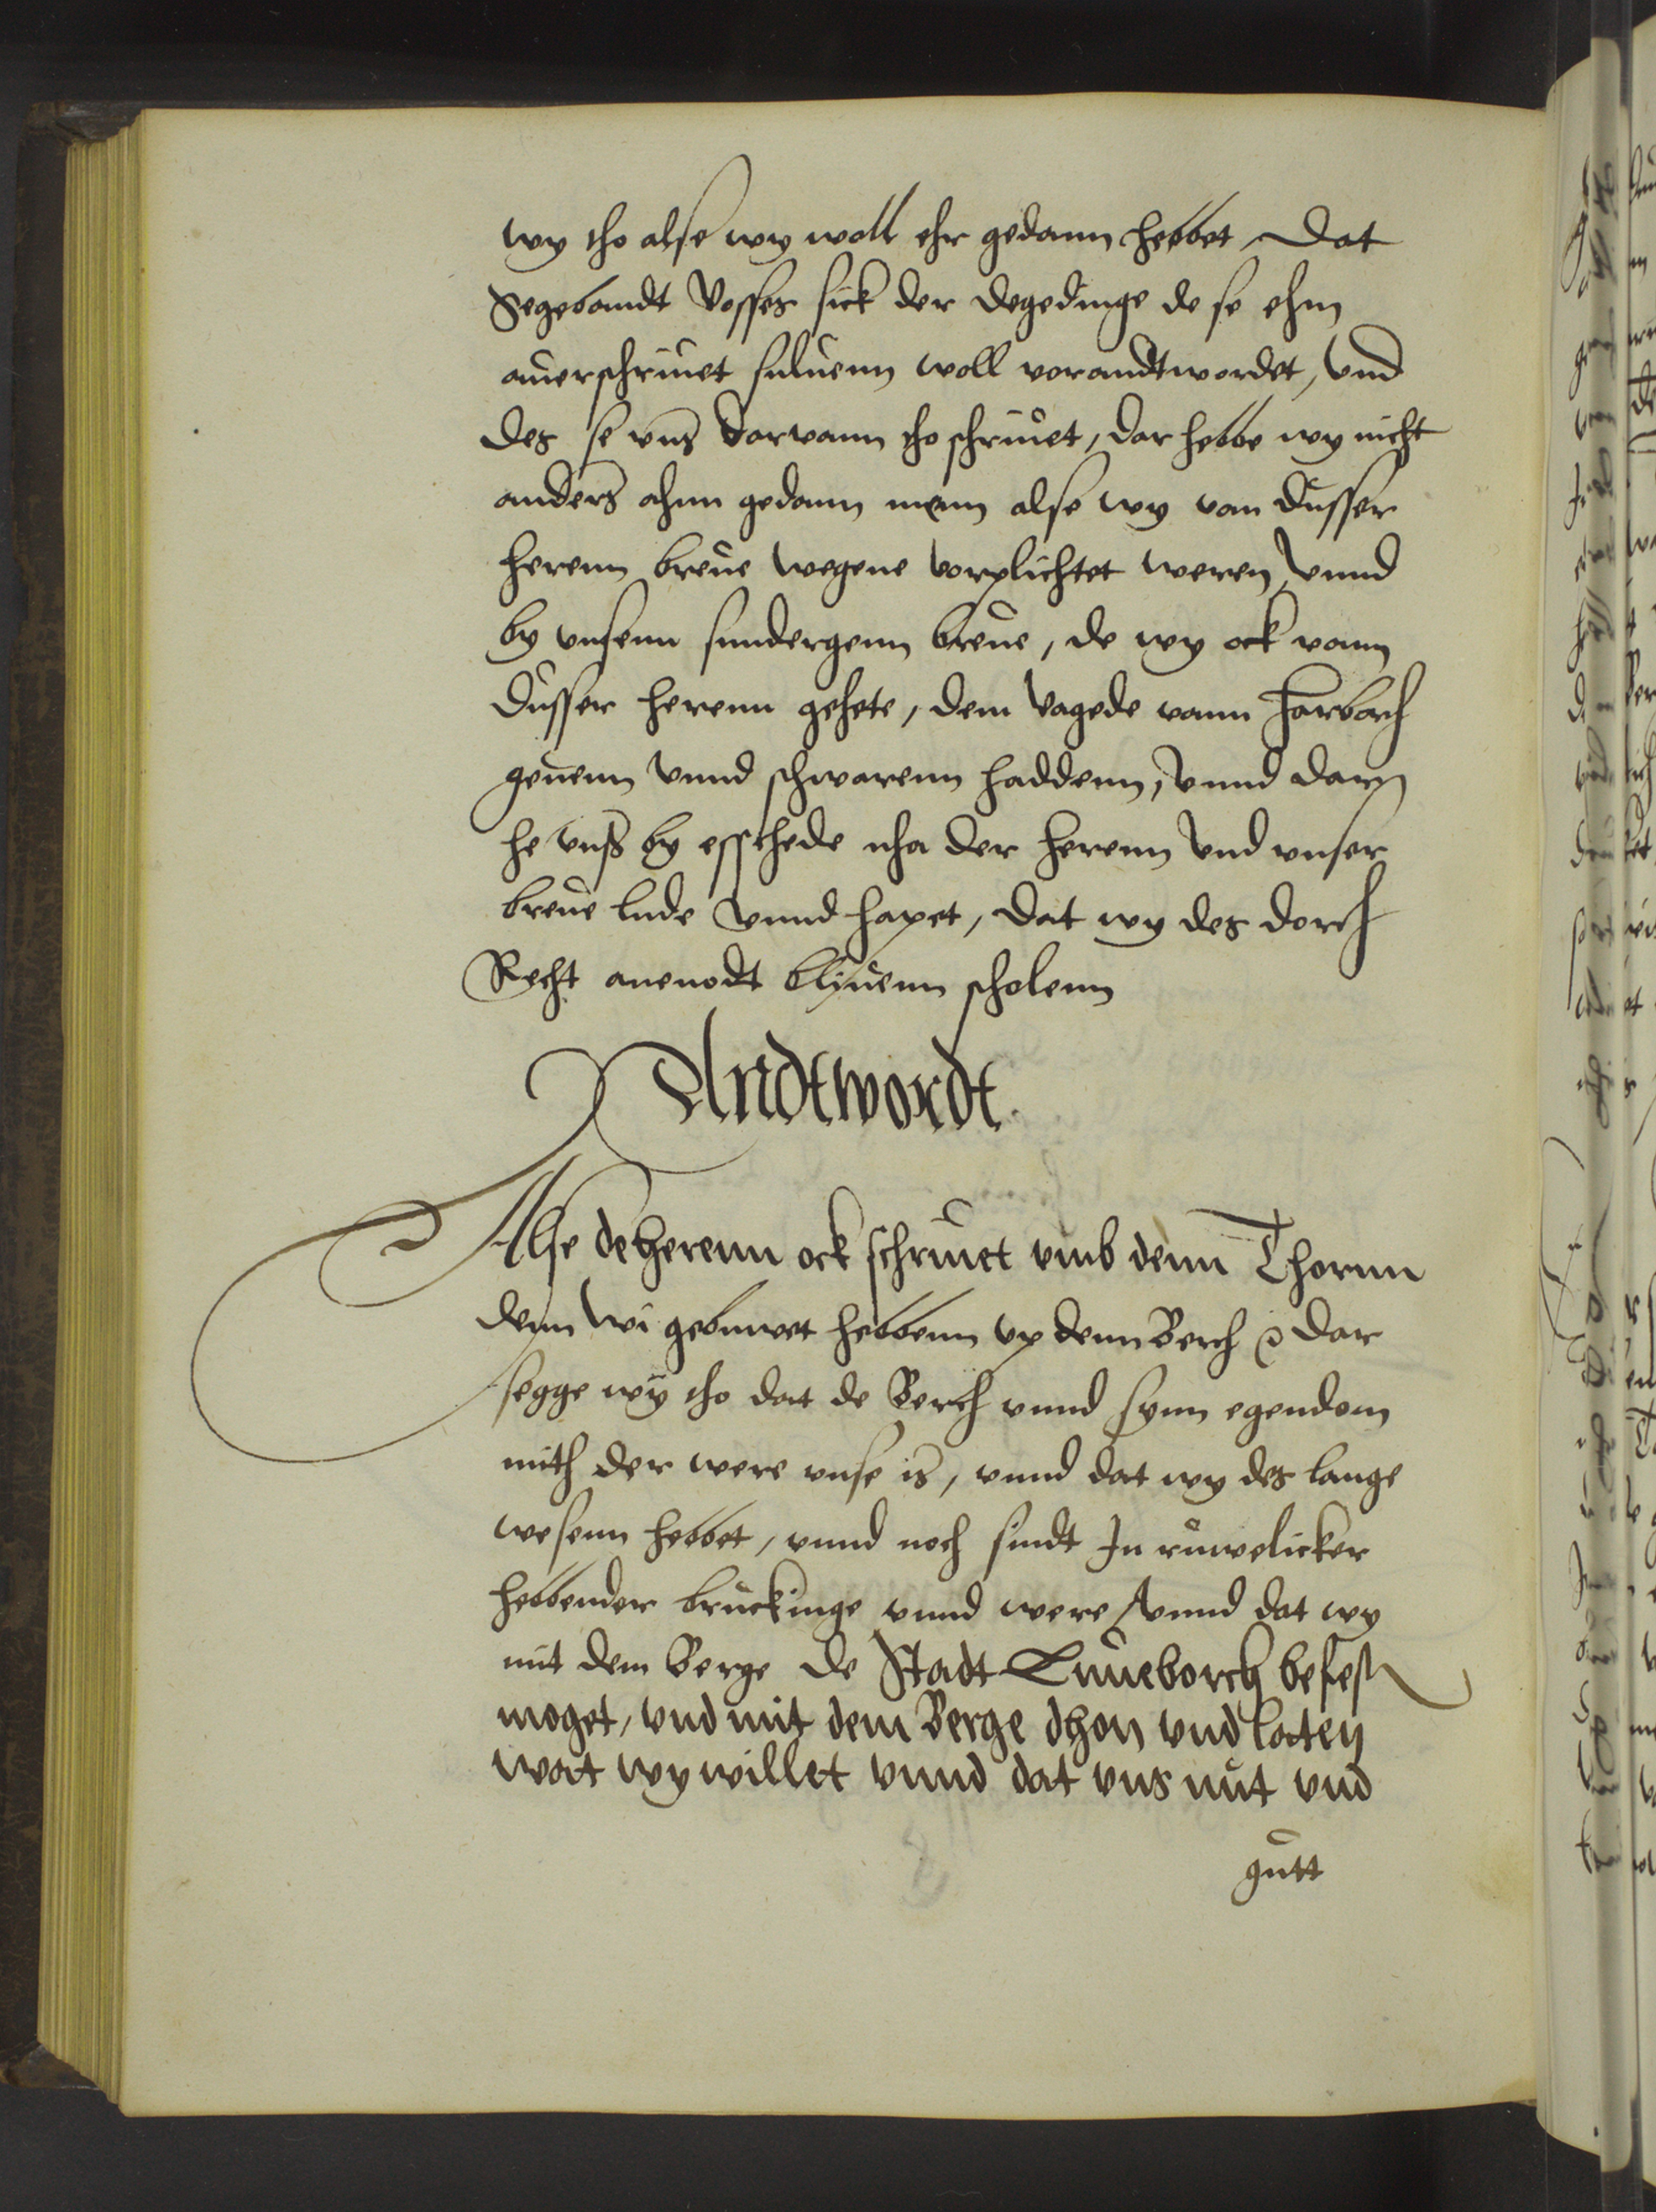 wy tho alse wy woll ehr gedann hebbet, Dat
Segebandt Vosses sick der degedinge de se ehm
auerschriuet suluenn woll vorandtwordet, Vnd
des se vns daruann tho schriuet, dar hebbe wy nicht
anders ahnn gedann mann alse wy van dusser
herenn breue wegene vorplichtet weren, vnnd
by vnsenn sundergenn breue, de wy ock vann
dusser herenn gehete, dem vagede vann Harborch
geuenn vnnd schwarenn haddenn, vnnd darn
he vnß by esschede nha der herenn vnd vnser
breue lude vnnd hapet, dat wy des dorch
Recht anenodt blyuenn scholenn
Andtwordt.
Alse de herenn ock schriuet vmb denn Thornn
denn wi gebuwet hebbenn vp denn Berch dar
segge wÿ tho dat de Berch vnnd synn egendom
mith der were vnse is, vnnd dat wy des lange
wesenn hebbet, vnnd noch sindt In ruwelicker
hebbender bruckinge vnnd were, vnnd dat wy
mit dem Berge de Stadt Luneborch befest
moget, vnd mit dem Berge dhon vnd laten
wat wy willet vnnd dat vns nut vnd
gutt